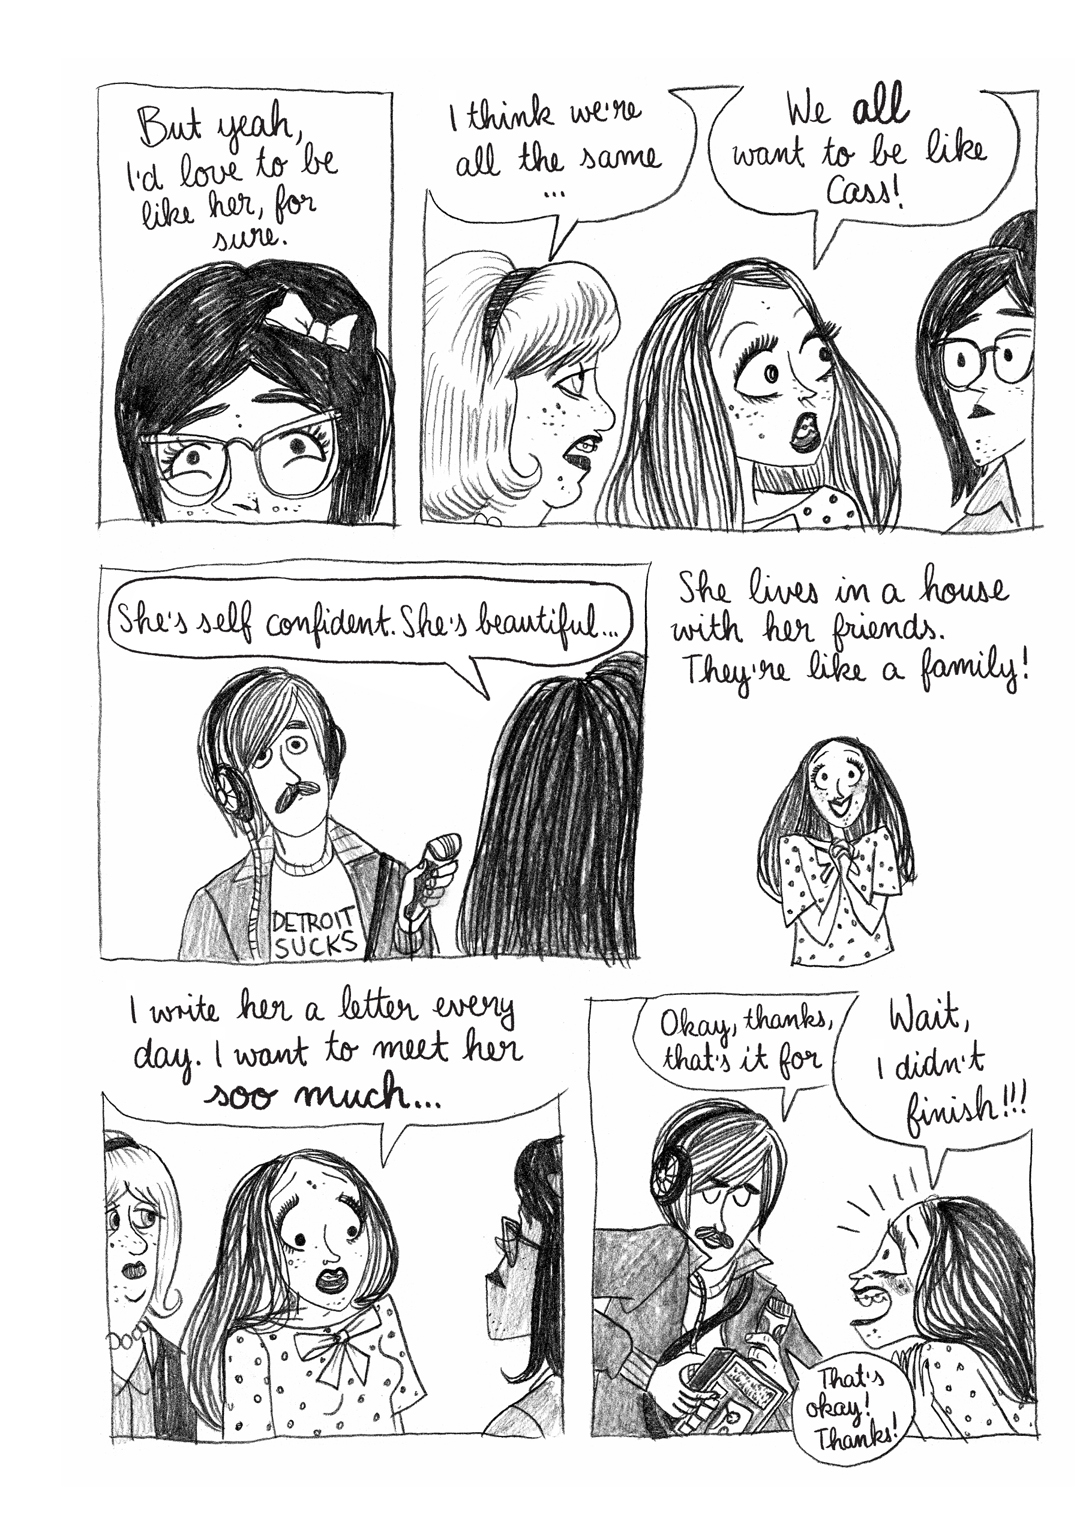 But yeah,
I'd love to be
like her, for
sure.
I think we're
all the same
...
We all
want to be like
Cass!
She's self confident. She's beautiful...
DETROIT
SUCKS
She lives in a house
with her friends.
They're like a family!
I write her a letter every
day. I want to meet her
soo much...
Okay, thanks,
that's it for
Wait,
I didn't
finish!!!
That's
okay!
Thanks!